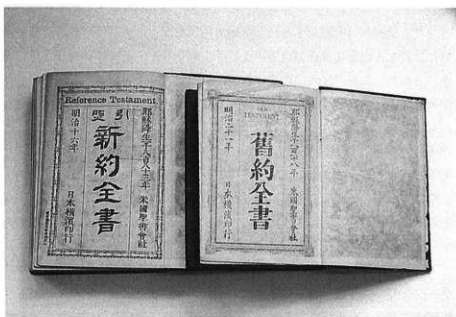 Reference Testament.
引照
耶穌降生千八百八十三年 米國聖書會社
新約全書
明治十六年 日本横濱印行
TESTAMENT
耶穌降生千八百八十八年 米國聖書會社
舊約全書
明治二十一年 日本横濱印行